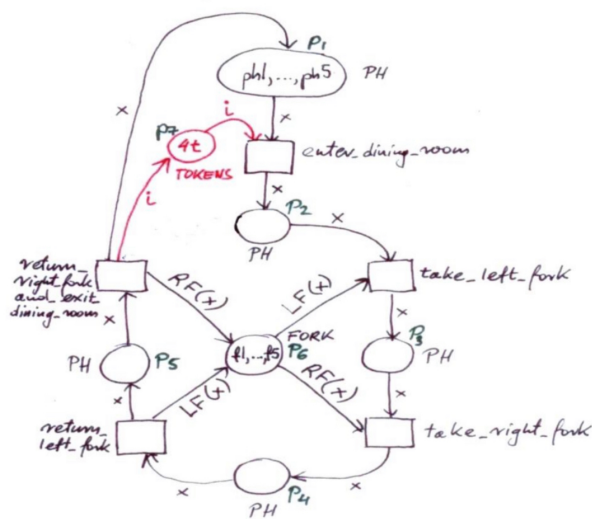 P1
ph1,...,ph5
PH
x
x
i
P7
4t
TOKENS
enter_dining_room
i
x
P2
x
PH
return_
right_fork
and_exit
dining_room
RF(x)
LF(x)
take_left_fork
x
x
FORK
f1,..,f5
P6
P3
PH
PH
P5
x
LF(x)
RF(x)
x
return_
left_fork
take_right_fork
x
P4
x
PH